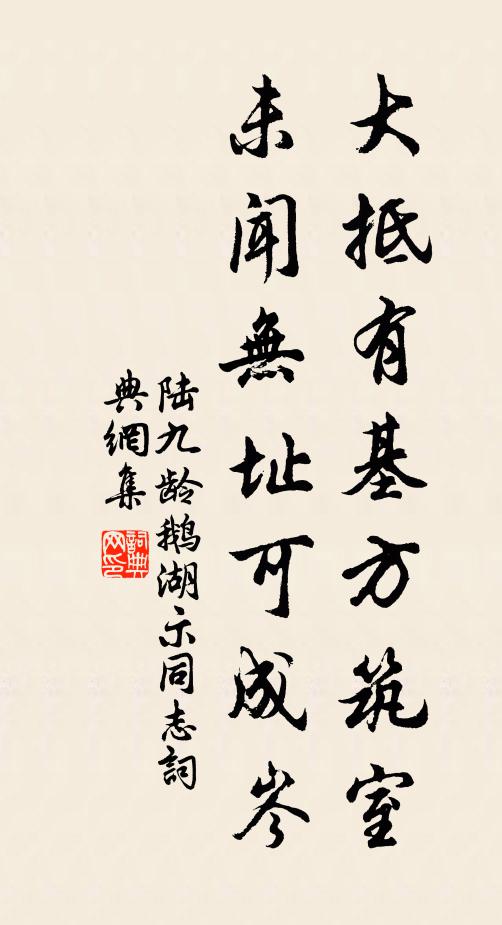 大抵有基方筑室
未闻無址可成岑
陆九龄鹅湖示同志詞
典網集
詞典
网印